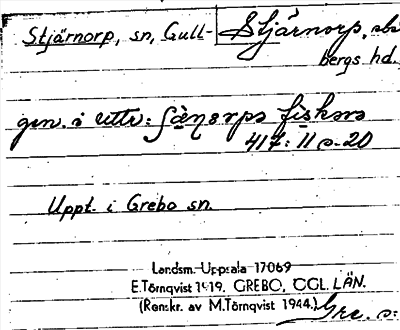 Stjärnorp, sn, Gull- Stjärnorp,
bergs hd.
gen. i uttr: fiskara
417: 11 s. 20
Uppt. i Grebo sn.
Landsm. Uppsala 17069
E. Törnqvist 1919. GREBO, ÖGL. LÄN.
(Renskr. av M. Törnqvist 1944.)